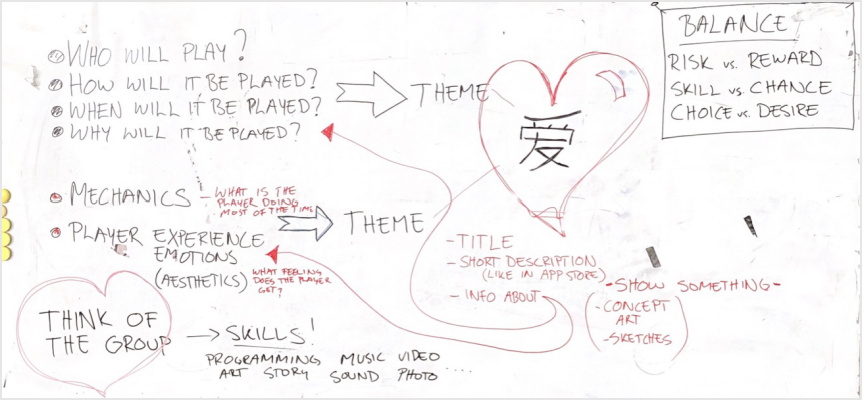 WHO WILL PLAY?
HOW WILL IT BE PLAYED?
WHEN WILL IT BE PLAYED?
WHY WILL IT BE PLAYED?
THEME
爱
BALANCE
RISK vs. REWARD
SKILL vs. CHANCE
CHOICE vs. DESIRE
MECHANICS - WHAT IS THE
PLAYER DOING
MOST OF THE TIME
PLAYER EXPERIENCE
EMOTIONS
(AESTHETICS)
WHAT FEELING
DOES THE PLAYER
GET?
THEME
-TITLE
-SHORT DESCRIPTION
(LIKE IN APPSTORE)
- INFO ABOUT
-SHOW SOMETHING-
-CONCEPT
ART
-SKETCHES
THINK OF
THE GROUP
→ SKILLS!
PROGRAMMING MUSIC VIDEO
ART STORY SOUND PHOTO ....